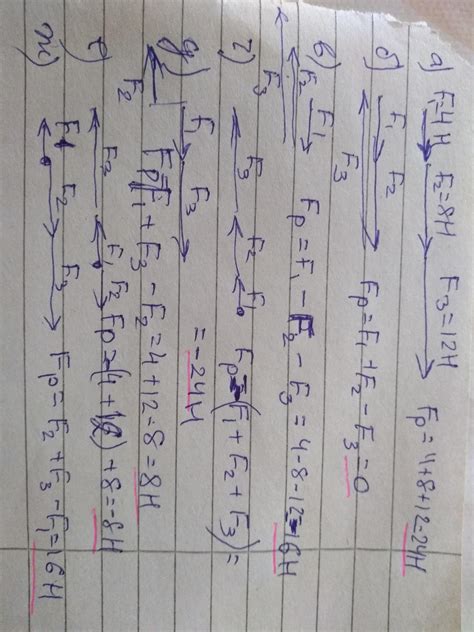 а) F₁=4Н F₂=8Н F₃=12Н Fр=4+8+12=24Н
б) F₁ F₂ F₃ Fр=F₁+F₂-F₃=0
в) F₂ F₁ F₃ Fр=F₁-F₂-F₃=4-8-12=-16Н
г) F₃ F₂ F₁ Fр=-(F₁+F₂+F₃)=
=-24Н
д) F₁ F₃ F₂ Fр=F₁+F₃-F₂=4+12-8=8Н
е) F₃ F₁ F₂ Fр=-(4+12)+8=-8Н
ж) F₁ F₂ F₃ Fр=F₂+F₃-F₁=16Н